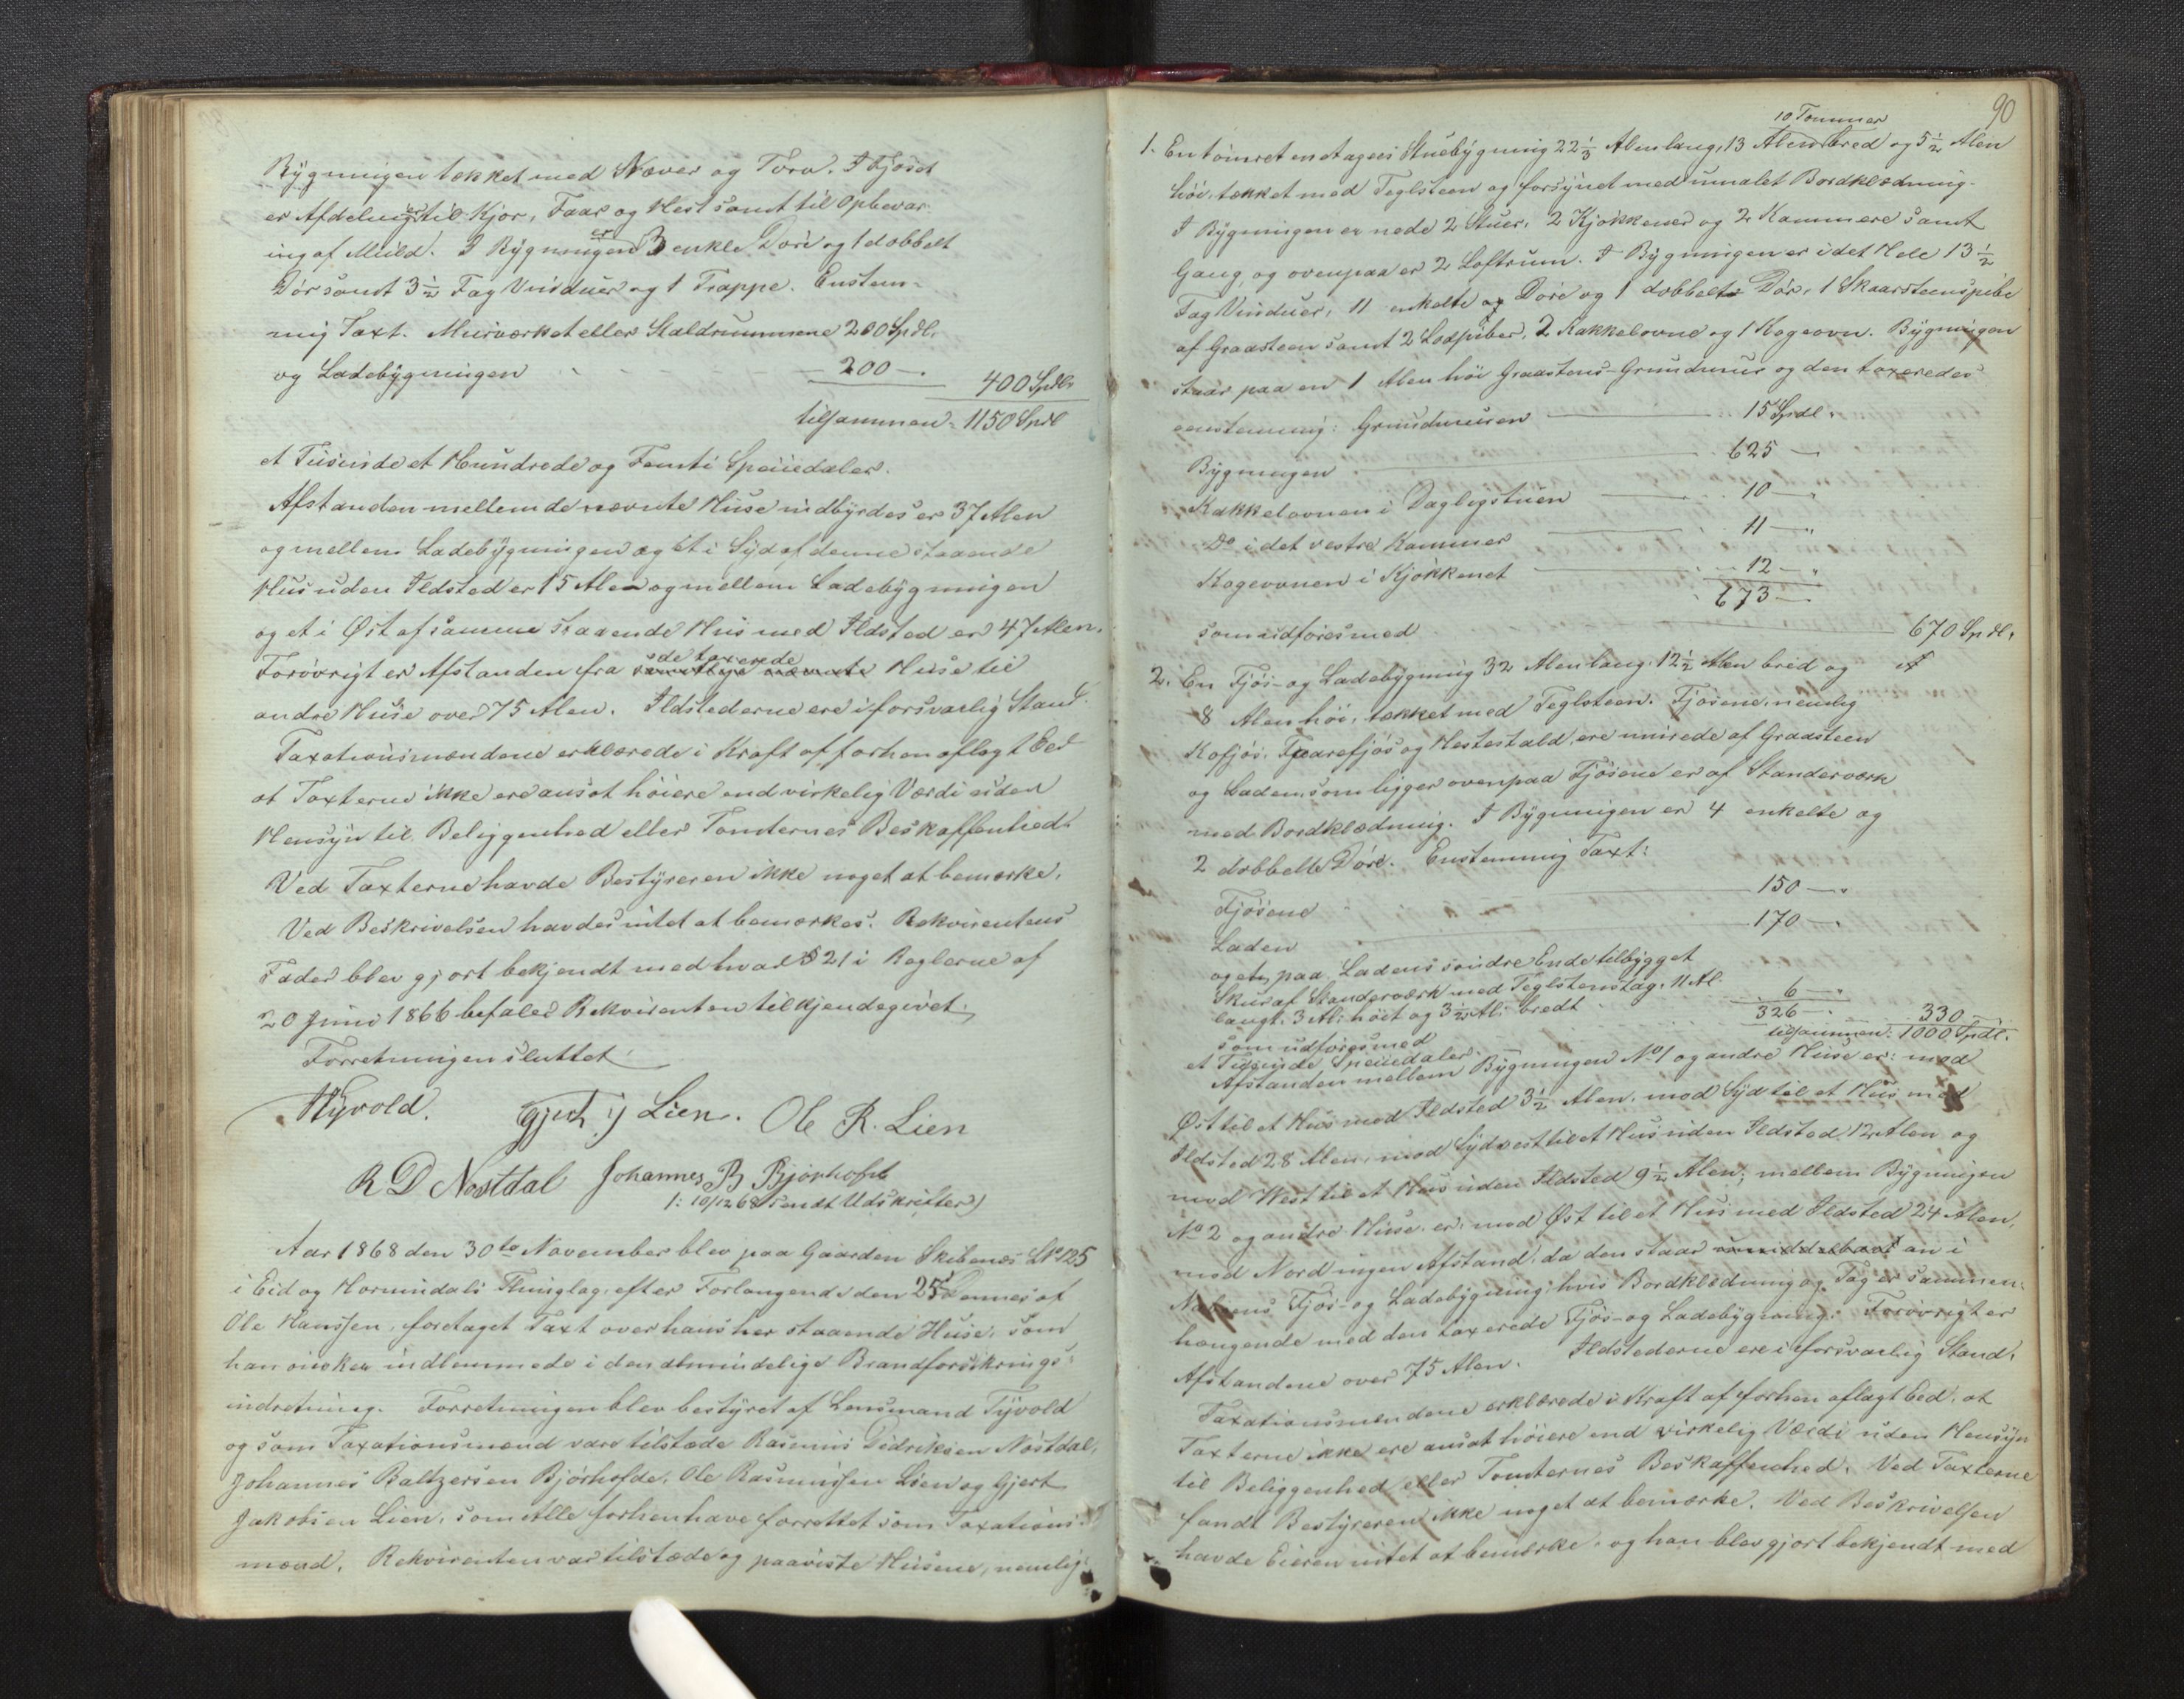 Bygningen tækket med Næver og Torv. I Fjøset
er Afdelinger til Kjør, Faar og Hest samt til Opbevar-
ing af Muld. I Bygningen er 3 enkle Døre og 1 dobbelt
Dør samt 3½ Fag Vinduer og 1 Trappe. Enstem-
mig Taxt. Murværket eller Staldrummene 200 Spdl.
og Ladebygningen 200 —
400 Spdlr
tilsammen = 1150 Spdl
et Tusinde et Hundrede og Femti Speciedaler.
Afstanden mellem de nævnte Huse indbyrdes er 37 Alen
og mellem Ladebygningen og et i Syd af denne staaende
Hus uden Ildsted er 15 Alen og mellem Ladebygningen
og et i Øst af samme staaende Hus med Ildsted er 47 Alen.
Forøvrigt er Afstanden fra samtlige nævnte de taxerede Huse til
andre Huse over 75 Alen. Ildstederne ere i forsvarlig Stand.
Taxationsmændene erklærede i Kraft af forhen aflagt Eed
at Taxterne ikke ere ansat høiere end virkelig Værdi uden
Hensyn til Beliggenhed eller Tomternes Beskaffenhed.
Ved Taxterne havde Bestyreren ikke noget at bemærke.
Ved Beskrivelsen havdes intet at bemærkes. Rekvirentens
Fader blev gjort bekjendt med hvad § 21 i Reglerne af
20 Juni 1866 befaler Rekvirenten tilkjendegivet.
Forretningen sluttet
Tyvold. Gjert J Lien. Ole R. Lien
R D Nøstdal Johannes B Bjørhofde
/: 10/12 68 sendt Udskrifter)
Aar 1868 den 30te November blev paa Gaarden Skibenes LN 125
i Eid og Hornindals Thinglag, efter Forlangende den 25de dennes af
Ole Hanssen, foretaget Taxt over hans her staaende Huse, som
han ønsker indlemmede i den almindelige Brandforsikrings-
indretning. Forretningen blev bestyret af Lensmand Tyvold
og som Taxationsmænd vare tilstæde Rasmus Didriksen Nøstdal,
Johannes Baltzersen Bjørhofde, Ole Rasmussen Lien og Gjert
Jakobsen Lien, som Alle forhen have forrettet som Taxations-
mænd. Rekvirenten var tilstæde og paaviste Husene, nemlig:
90
10 Tommer
1. En tømret en etages Stuebygning 22⅓ Alen lang, 13 Alen bred og 5½ Alen
høi, tækket med Teglsteen og forsynet med umalet Bordklædning.
I Bygningen er nede 2 Stuer, 2 Kjøkkener og 2 Kammere samt
Gang, og ovenpaa er 2 Loftrum. I Bygningen er i det Hele 13½
Fag Vinduer, 11 enkelte og Døre og 1 dobbelt Dør, 1 Skaarsteenspibe
af Graasteen samt 2 Lodpiber, 2 Kakkelovne og 1 Kogeovn. Bygningen
staar paa en 1 Alen høi Graastens-Grundmur og den taxeredes
enstemmig: Grundmuren 15 Spdl.
Bygningen 625 —
Kakkelovnen i Dagligstuen 10 — "
Do i det vestre Kammer 11 — "
Kogeovnen i Kjøkkenet 12 — "
673 —
som udføres med 670 Spdl.
2. En Fjøs- og Ladebygning 32 Alen lang, 12½ Alen bred og
8 Alen høi, tækket med Teglsteen. Fjøsene, nemlig
Kofjøs, Faarefjøs og Hestestald, ere murede af Graasteen
og Laden, som ligger ovenpaa Fjøsene er af Standerværk
med Bordklædning. I Bygningen er 4 enkelte og
2 dobbelte Døre. Enstemmig Taxt:
Fjøsene 150 — "
Laden 170 — "
og et, paa Ladens søndre Ende tilbygget
Skur af Standerværk med Teglstenstag, 11 Al.
langt, 3 Al. høit og 3½ Al. bredt 6 — "
som udføres med 326 — 330 —
tilsammen: 1000 Spdl.
et Tusinde Speciedaler.
Afstanden mellem Bygningen No 1 og andre Huse er: mod
Øst til et Hus med Ildsted 3½ Alen, mod Syd til et Hus med
Ildsted 28 Alen, mod Sydvest til et Hus uden Ildsted 12 Alen og
mod Vest til et Hus uden Ildsted 9½ Alen; mellem Bygningen
No 2 og andre Huse er: mod Øst til et Hus med Ildsted 24 Alen,
mod Nord ingen Afstand, da den staar umiddelbart an i
Naboens Fjøs- og Ladebygning, hvis Bordklædning og Tag er sammen-
hængende med den taxerede Fjøs- og Ladebygning. Forøvrigt er
Afstandene over 75 Alen. Ildstederne ere i forsvarlig Stand.
Taxationsmændene erklærede i Kraft af forhen aflagt Eed, at
Taxterne ikke ere ansat høiere end virkelig Værdi uden Hensyn
til Beliggenhed eller Tomternes Beskaffenhed. Ved Taxterne
fandt Bestyreren ikke noget at bemærke. Ved Beskrivelsen
havde Eieren intet at bemærke, og han blev gjort bekjendt med